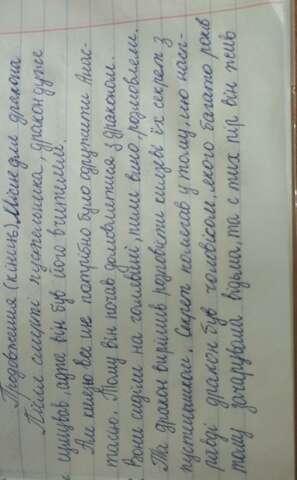 Продовження (кінець) Місяць для дракона
Після смерті пустельника, дракон дуже
сумував, адже він був його вчителем.
Але князю все ще потрібно було одружити Анас-
тасію. Тому він почав домовлятися з драконом.
Вони сиділи на галявині, пили вино, розмовляли.
Та дракон вирішив розповісти князеві їх секрет з
пустельником. Секрет полягав у тому, що насп-
равді дракон був чоловіком, якого багато років
тому зачарувала відьма, та с тих пір він жив